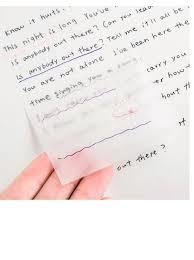 Know it hurts.
This night is long You've
Is anybody out there? Can you lead
Is anybody out there? Tell me it'll all be
You are not alone I've been here the
time singing you a song
carry you
er how
hout th
rt
out there?